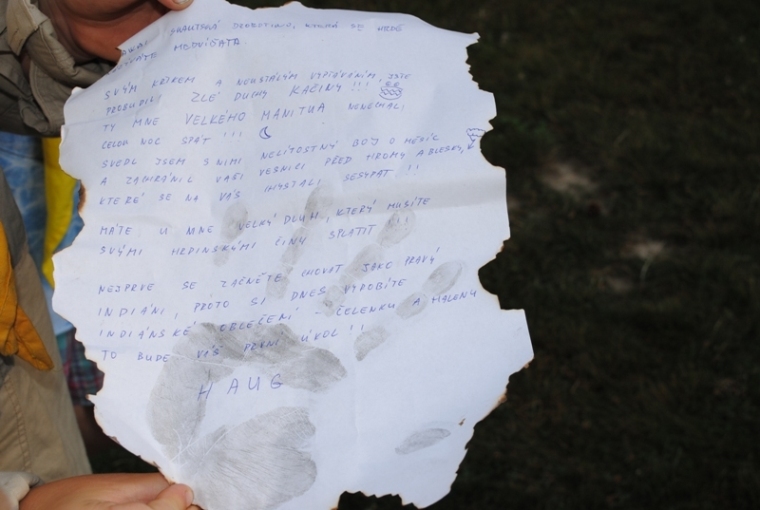 SKAUTSKÁ DROBOTINO, KTERÁ SE
MEDVÍĎATA
SVÝM KŘIKEM A NEUSTÁLÝM VYPTÁVÁNÍM JSTE
PROBUDILI ZLÉ DUCHY KAČINY !!!
TY MNE VELKÉHO MANITUA NENECHALI
CELOU NOC SPÁT !!!
SVEDL JSEM S NIMI NELÍTOSTNÝ BOJ O MĚSÍC
A ZACHRÁNIL VAŠI VESNICI PŘED HROMY A BLESKY,
KTERÉ SE NA VÁS CHYSTALI SESYPAT !!
MÁTE U MNE VELKÝ DLUH, KTERÝ MUSÍTE
SVÝMI HRDINSKÝMI ČINY SPLATIT !!!
NEJPRVE SE ZAČNĚTE CHOVAT JAKO PRAVÝ
INDIÁNI, PROTO SI DNES VYROBÍTE
INDIÁNSKÉ OBLEČENÍ - ČELENKU A HALENU
TO BUDE VÁŠ PRVNÍ ÚKOL !!
HAUG